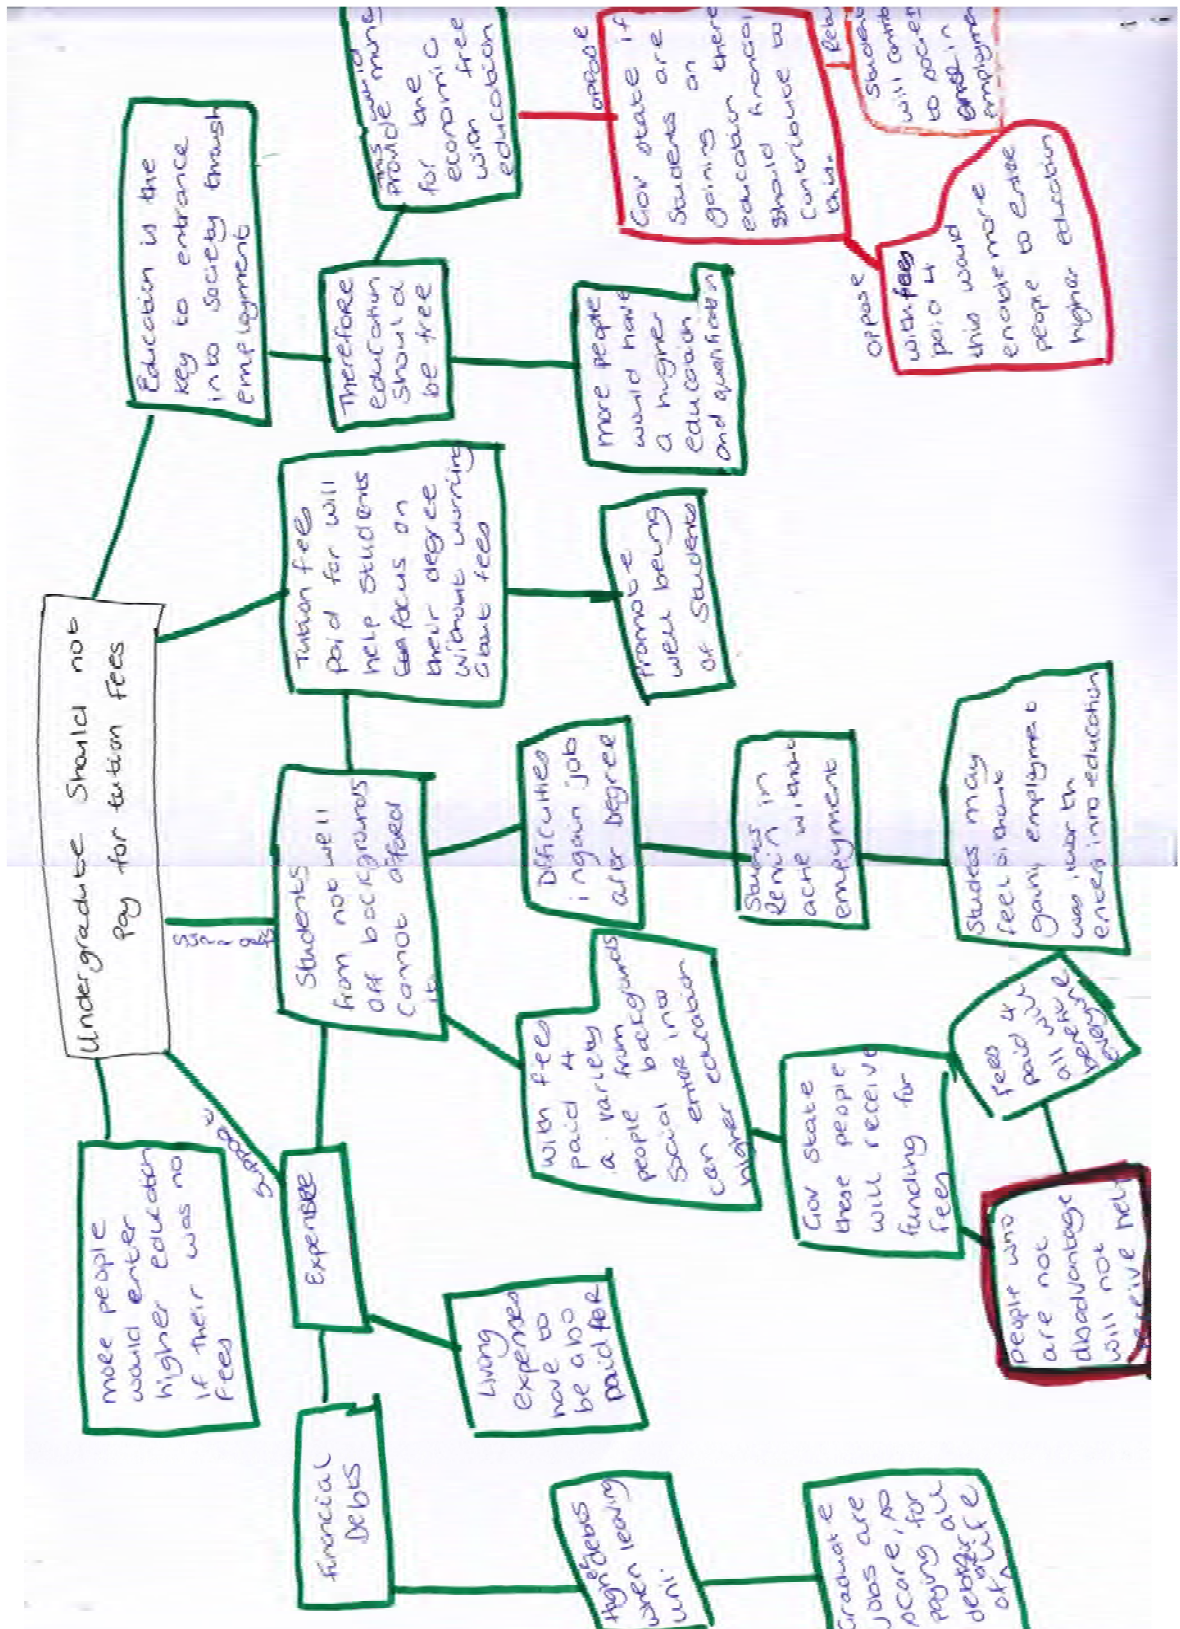 Undergraduate Should not
Pay for tution Fees
more people
would enter
higher education
if their was no
fees
Supports
Expensive
Financial
Debts
Living
expenses
have to
be also
paid for
Higher debts
when leaving
uni.
Graduate
jobs are
scare, so
paying for
debts
of life
Supports
Students
from not well
off backgrounds
cannot afford
it
With fees
paid 4
a variety
people from
social backgrounds
can enter into
higher education
Gov state
these people
will receive
funding for
fees
People who
are not
disadvantage
will not
receive help
Fees 4
paid will
all
benefit
everyone
Difficulties
in gain job
after Degree
Remin in
without
empoyment
Studes may
feel
gain employment
was worth
into education
Tution fees
paid for will
help Students
focus on
their degree
without worring
about fees
Promote
well being
of students
Education is the
key to entrance
into society through
employment
Therefore
education
should
be free
more people
would have
a higher
education
and
provide more
for the
economic
with free
education
oppose
Gov state if
Students are
gaining an
education there
should financial
contribute to
this.
Students
will
to society
in
employment
oppose
with fees
paid 4
this would
enable more
people to enter
higher education